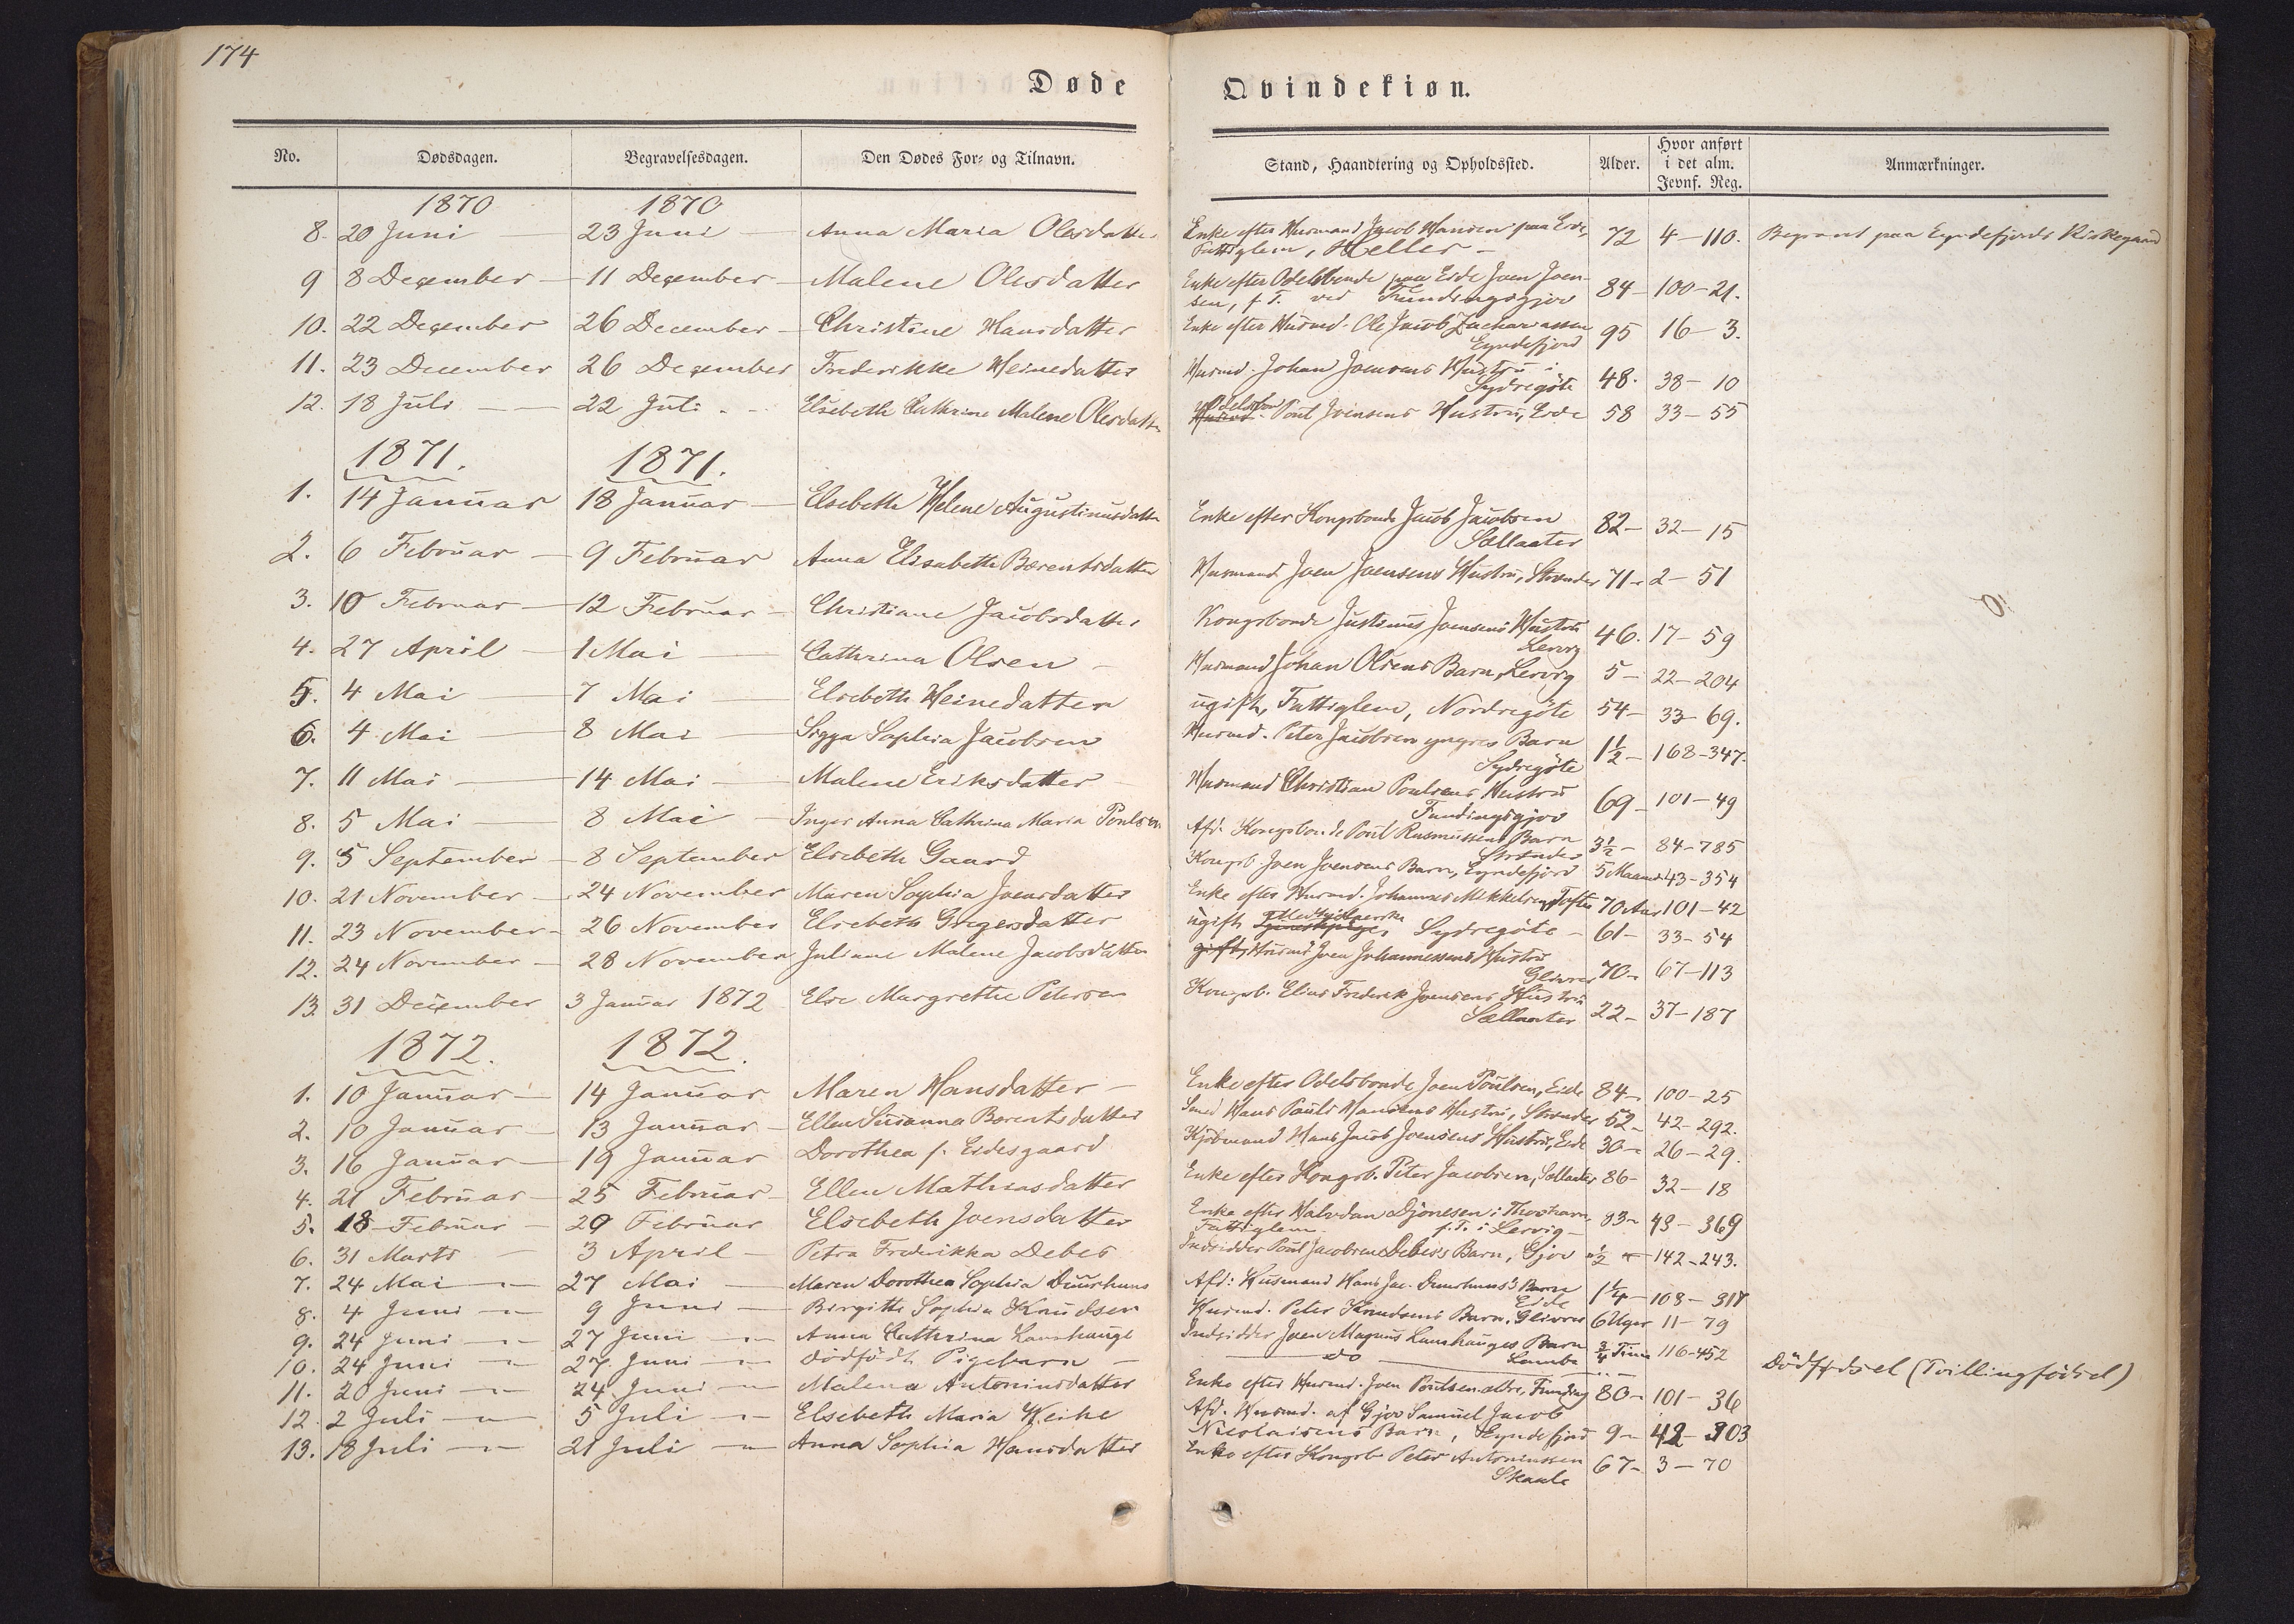 174
Døde Qvindekiøn.
No. Dødsdagen. Begravelsesdagen. Den Dødes For- og Tilnavn. Stand, Haandtering og Opholdssted. Alder. Hvor anført i det alm. Jevnf. Reg. Anmærkninger.
1870 1870
8. 20 Juni 23 Juni Anna Maria Olesdatter Enke efter Husmand Jacob Hansen paa Eide, 72 4-110. Begravet paa Eyndefjords Kirkegaard
Fattiglem, Heller
9 8 December 11 December Malene Olesdatter Enke efter Odelsbonde paa Eide Joen Joen- 84 100-21.
sen, f. T. ved Fundingsgjov
10. 22 December 26 December Christine Hansdatter Enke efter Husmd. Ole Jacob Zachariassen 95 16-3.
Eyndefjord
11. 23 December 26 December Frederikke Heinedatter Husmd. Johan Joensens Hustru i 48. 38-10
Sydregöte
12. 18 Juli 22 Juli Elsebeth Cathrine Malene Olesdatter Odelsbon Poul Joensens Hustru, Eide 58 33-55
1871. 1871.
1. 14 Januar 18 Januar Elsebeth Helene Augustinusdatter Enke efter Kongsbonde Jacob Jacobsen 82 32-15
Sællaater
2. 6 Februar 9 Februar Anna Elisabeth Berentsdatter Husmand Joen Joensens Hustru, Strænder 71 2-51
3. 10 Februar 12 Februar Christiane Jacobsdatter Kongsbonde Justinus Joensens Hustru 46. 17-59
Lervig
4. 27 April 1 Mai Cathrina Olsen Husmand Johan Olsens Barn, Lervig 5 22-204
5. 4 Mai 7 Mai Elsebeth Heinedatter ugift, Fattiglem, Nordregöte 54 33-69.
6. 4 Mai 8 Mai Sigga Sophia Jacobsen Husmd. Peter Jacobsen yngres Barn 1½ 168-347.
Sydregöte
7. 11 Mai 14 Mai Malene Eriksdatter Husmand Christian Poulsens Hustru 69 101-49
Fundingsgjov
8. 5 Mai 8 Mai Inger Anna Cathrina Maria Poulsen Afd. Kongsbonde Poul Rasmussens Barn 3½ 84-785
Strænder
9. 5 September 8 September Elsebeth Gaard Kongsb. Joen Joensens Barn, Eyndefjord 5 Maaned 43-354
10. 21 November 24 November Maren Sophia Joensdatter Enke efter Husmd. Johannes Mikkelsen, Tofte 70 Aar 101-42
11. 23 November 26 November Elsebeth Gregersdatter ugift Sydregöte 61 33-54
12. 24 November 28 November Juliane Malene Jacobsdatter gift, Husmd Joen Johannessens Hustru 70 67-113
Glivrer
13. 31 December 3 Januar 1872 Else Margrethe Petersen Kongsb. Elias Frederik Joensens Hustru 22 37-187
Sællaater
1872. 1872.
1. 10 Januar 14 Januar Maren Hansdatter Enke efter Odelsbonde Joen Poulsen, Eide 84 100-25
2. 10 Januar 13 Januar Ellen Susanna Berentsdatter Smed Hans Pauli Hansens Hustru, Strænder 52 42-292.
3. 16 Januar 19 Januar Dorothea f. Eidesgaard Kjöbmand Hans Jacob Joensens Hustru, Eide 30 26-29.
4. 21 Februar 25 Februar Ellen Mathiasdatter Enke efter Kongsb. Peter Jacobsen, Sællaater 86 32-18
5. 18 Februar 29 Februar Elsebeth Joensdatter Enke efter Halvdan Djonesen i Thorshavn, 93 43-369
Fattiglem f. T. i Lervig
6. 31 Marts 3 April Petra Frederikka Debes Indsidder Poul Jacobsen Debes's Barn, Gjov ½ 142-243.
7. 24 Mai 27 Mai Maren Dorothea Sophia Duurhuus Afd. Husmand Hans Jac. Duurhuus's Barn 1¼ 108-317
Eide
8. 4 Juni 9 Juni Birgitte Sophia Knudsen Husmd. Peter Knudsens Barn, Glivrer 6 Uger 11-79
9. 24 Juni 27 Juni Anna Cathrina Lamhauge Indsidder Joen Magnus Lamhauges Barn ¾ Time 116-452
Lamba
10. 24 Juni 27 Juni dödfödt Pigebarn do Dödfødsel (Tvillingfödsel)
11. 20 Juni 24 Juni Malena Antoniusdatter Enke efter Husmd. Joen Poulsen ældre, Funding 80 101-36
12. 2 Juli 5 Juli Elsebeth Maria Weihe Afd. Husmd. af Gjov Samuel Jacob
Nicolaisens Barn, Eyndefjord 9 42-303
13. 18 Juli 21 Juli Anna Sophia Hansdatter Enke efter Kongsb Peter Antoniussen 67 3-70
Skaale